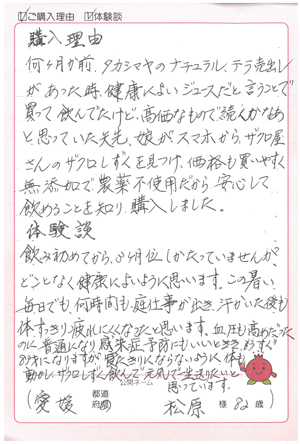 ☑ご購入理由 ☑体験談
購入理由
何ヶ月か前、タカシマヤのナチュラル、テラ売出し
があった時、健康によいジュースだと言うことで
買って飲んでたけど、高価なもので続くかなあ
と思っていた矢先、娘がスマホから、ザクロ屋
さんのザクロしずくを見つけ、価格も買いやすく
無添加で農薬不使用だから、安心して
飲めることを知り、購入しました。
体験談
飲み初めてから、3ヶ月位しかたっていませんが
どことなく健康によいように思います。この暑い
毎日でも、何時間も、庭仕事が出き、汗かいた後も
体すっきり、疲れにくくなったと思います。血圧も高めだった
のに普通になり感染症予防にもいいとき、もうすぐ
83才になりますが、寝たきりにならないように、体も
動かし、ザクロしずく飲んで元気で生活したいと
思っています。
公開ネーム
(愛媛 都道府県 松原 様 82歳)